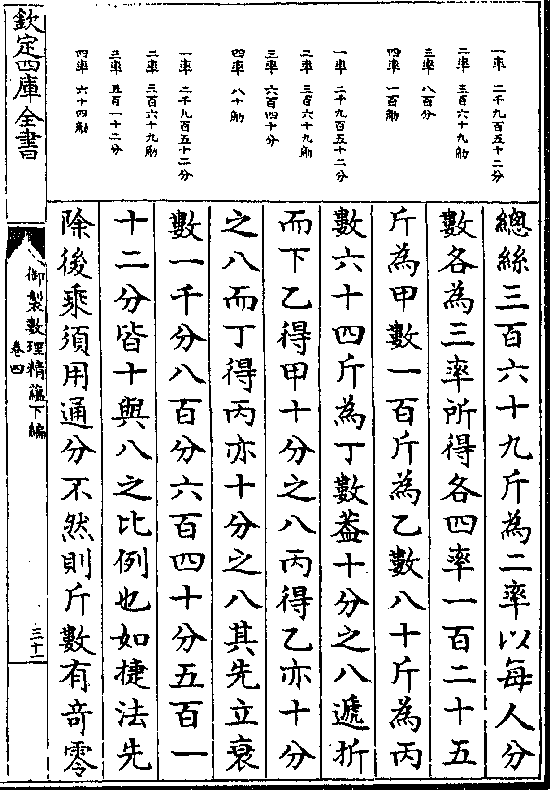 一率 二千九百五十二分
二率 三百六十九觔
三率 八百分
四率 一百觔
一率 二千九百五十二分
二率 三百六十九觔
三率 六百四十分
四率 八十觔
一率 二千九百五十二分
二率 三百六十九觔
三率 五百一十二分
四率 六十四觔
總絲三百六十九斤為二率以每人分
數各為三率所得各四率一百二十五
斤為甲數一百斤為乙數八十斤為丙
數六十四斤為丁數葢十分之八遞折
而下乙得甲十分之八丙得乙亦十分
之八而丁得丙亦十分之八其先立衰
數一千分八百分六百四十分五百一
十二分皆十與八之比例也如捷法先
除後乘須用通分不然則斤數有竒零
欽定四庫全書
御製數理精蘊下編
卷四
三十一